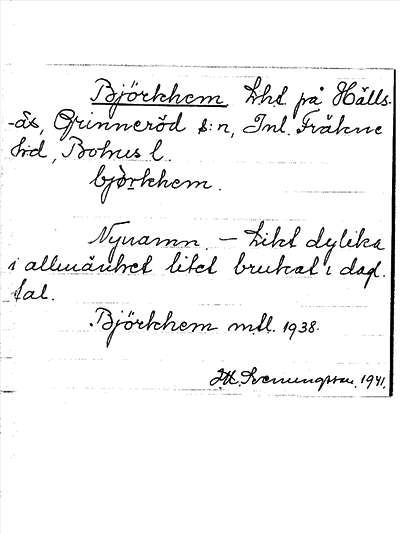 Björkhem Lht på Hålls-
-ås, Grinneröd s:n, Inl. Fräkne
hrd, Bohus l.
bjòrkhem.
Nynamn. – Likt dylika
i allmänhet litet brukat i dagl.
tal.
Björkhem mtl. 1938.
1941.